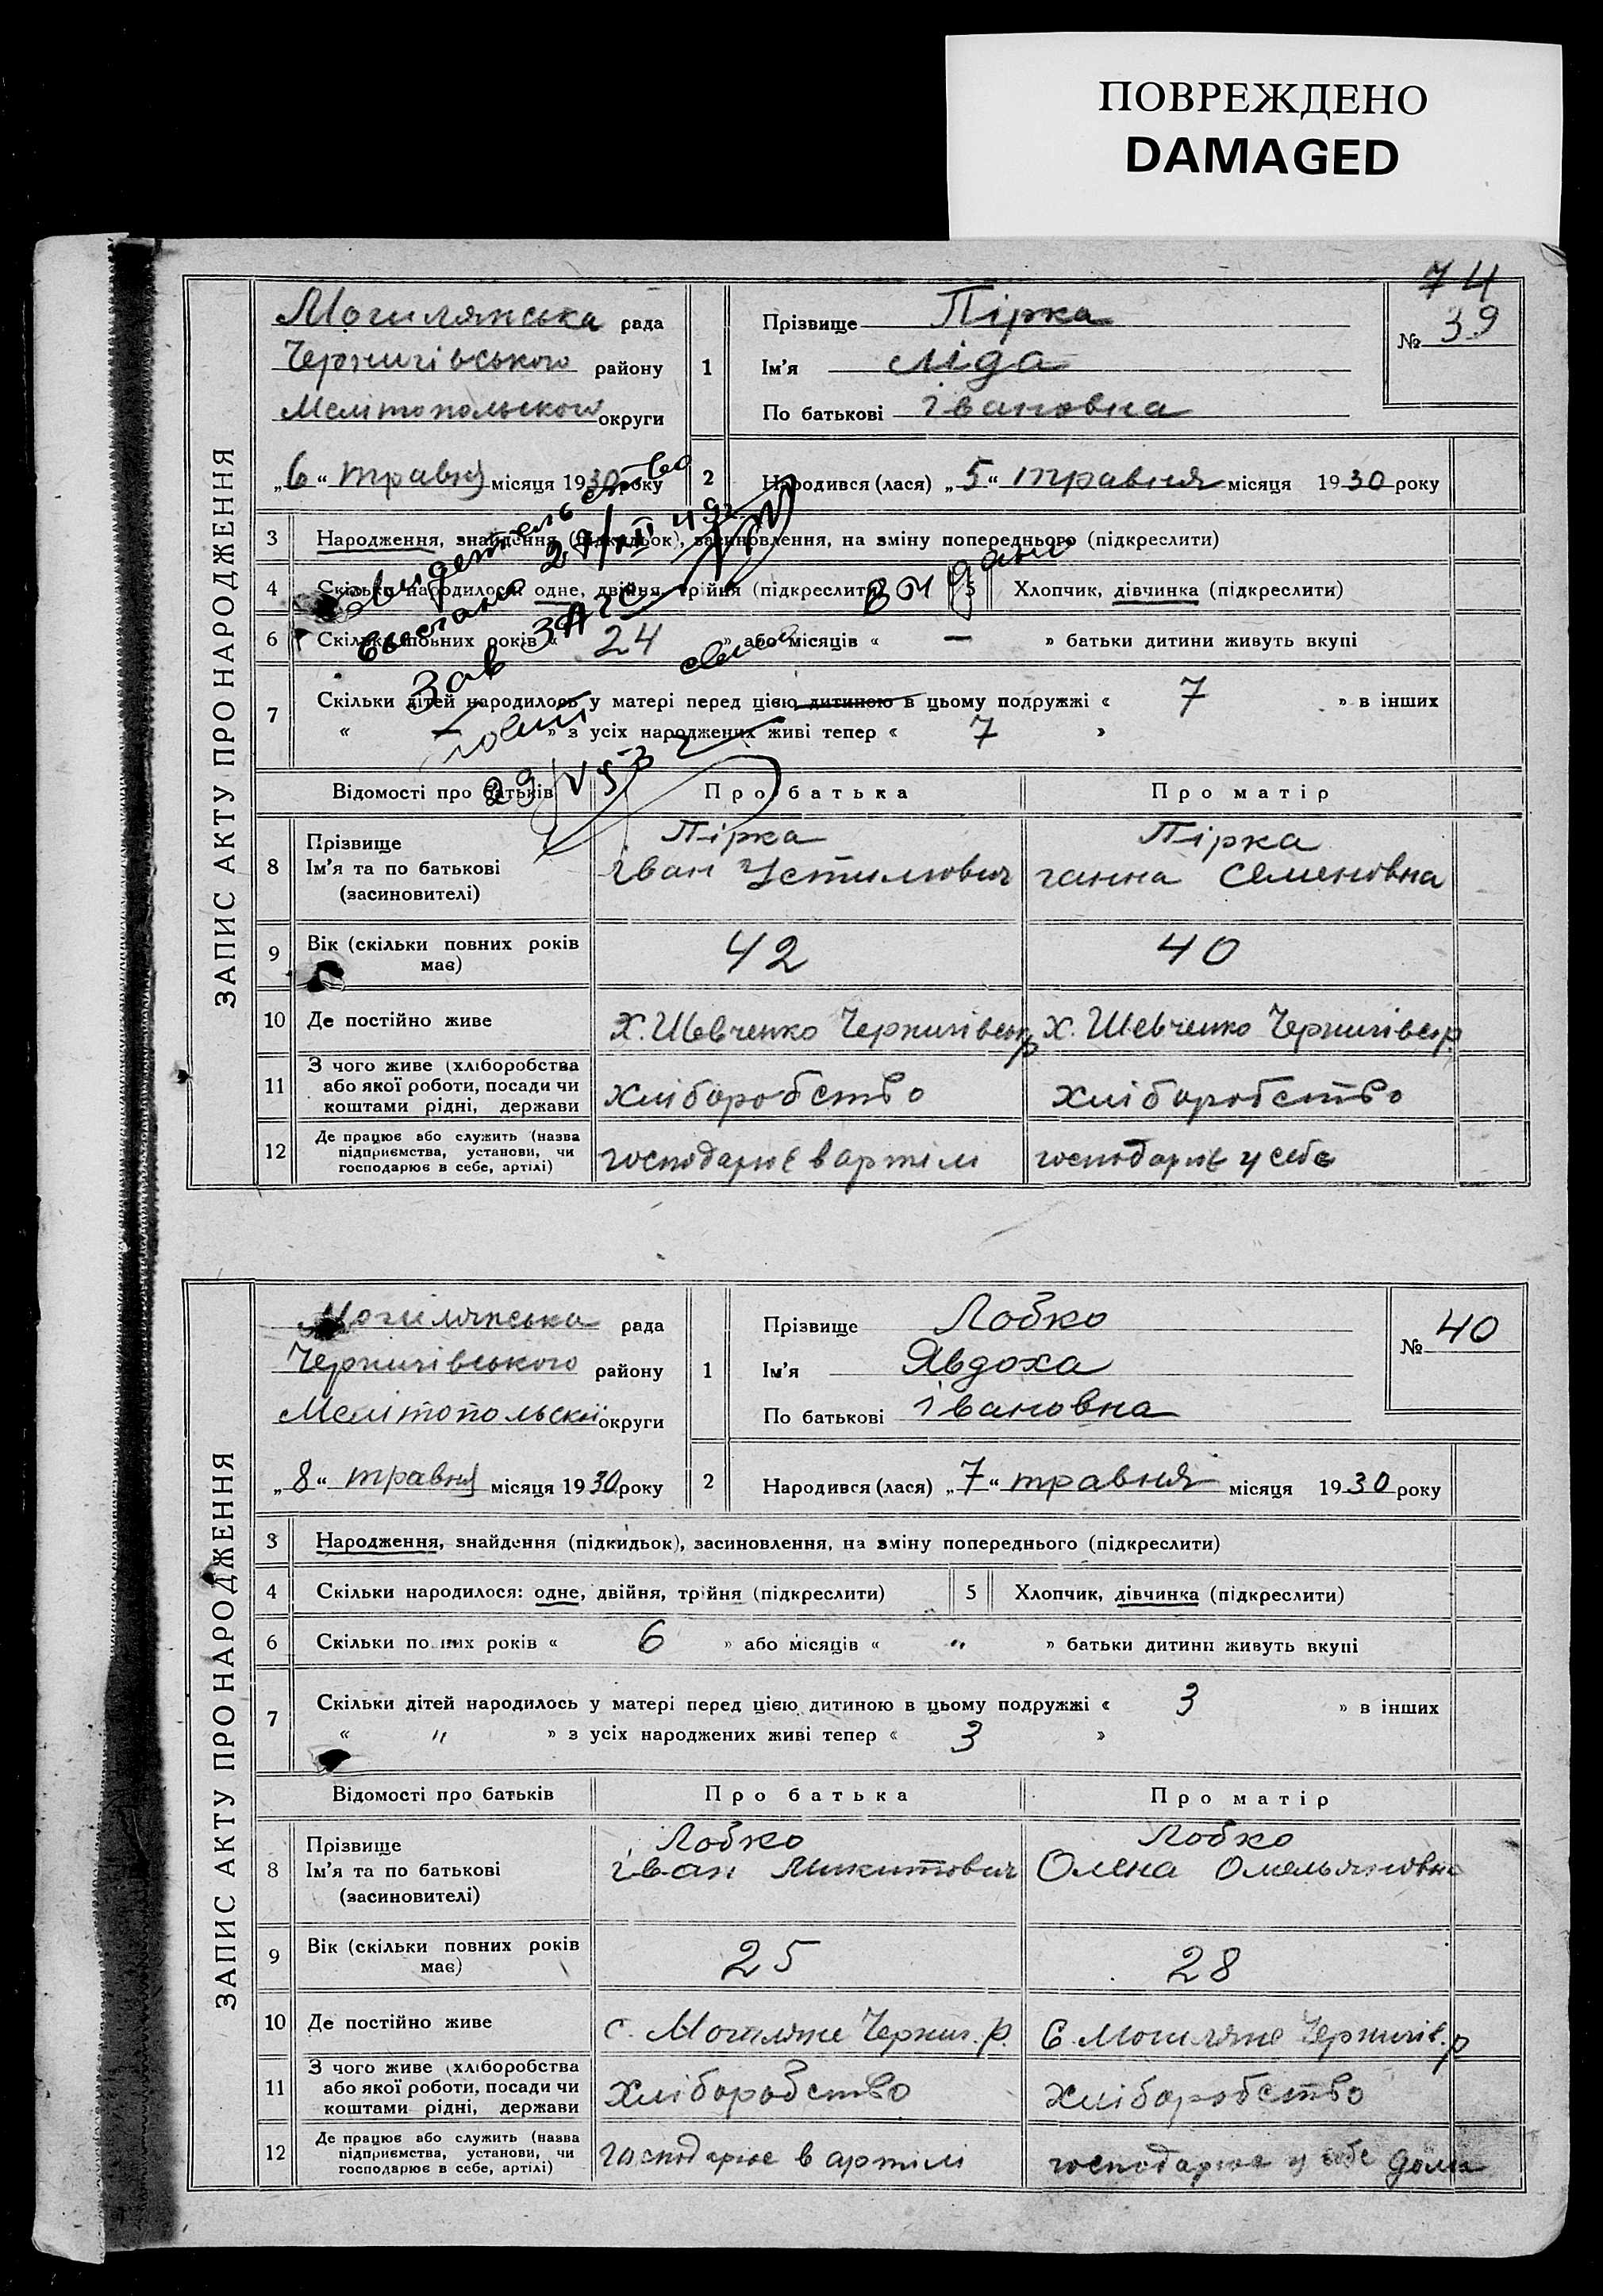 ПОВРЕЖДЕНО
DAMAGED
74
ЗАПИС АКТУ ПРО НАРОДЖЕННЯ
Могилянська рада
Чернигівського району
Мелітопольского округи
„6“ травня місяця 1930 року
1
Прізвище Пірка
Ім’я Ліда
По батькові івановна
№ 39
2 Народився (лася) „5“ травня місяця 1930 року
3 Народження, знайдення (підкидьок), засиновлення, на зміну попереднього (підкреслити)
4 Скільки народилося: одне, двійня, трійня (підкреслити) 5 Хлопчик, дівчинка (підкреслити)
6 Скільки повних років « 24 » або місяців « — » батьки дитини живуть вкупі
7 Скільки дітей народилось у матері перед цією дитиною в цьому подружжі « 7 » в інших
« — » з усіх народжених живі тепер « 7 »
свидетельство
выслано 27/XII 49г
Зав ЗАГС
29/V 53
Відомості про батьків Про батька Про матір
8 Прізвище
Ім’я та по батькові
(засновителі)
Пірка
іван Устимович
Пірка
ганна Семеновна
9 Вік (скільки повних років
має)
42 40
10 Де постійно живе Х. Шевченко Чернигівськ р Х. Шевченко Чернигівс р.
11 З чого живе (хліборобства
або якої роботи, посади чи
коштами рідні, держави
хліборобство хліборобство
12 Де працює або служить (назва
підприємства, установи, чи
господарює в себе, артілі)
господарює в артілі господарює у себе
ЗАПИС АКТУ ПРО НАРОДЖЕННЯ
Могилянська рада
Чернигівського району
Мелітопольскої округи
„8“ травня місяця 1930 року
1
Прізвище Лобко
Ім’я Явдоха
По батькові івановна
№ 40
2 Народився (лася) „7“ травня місяця 1930 року
3 Народження, знайдення (підкидьок), засиновлення, на зміну попереднього (підкреслити)
4 Скільки народилося: одне, двійня, трійня (підкреслити) 5 Хлопчик, дівчинка (підкреслити)
6 Скільки повних років « 6 » або місяців « " » батьки дитини живуть вкупі
7 Скільки дітей народилось у матері перед цією дитиною в цьому подружжі « 3 » в інших
« " » з усіх народжених живі тепер « 3 »
Відомості про батьків Про батька Про матір
8 Прізвище
Ім’я та по батькові
(засиновителі)
Лобко
іван Микитович
Лобко
Олена Омельяновна
9 Вік (скільки повних років
має)
25 28
10 Де постійно живе с. Могиляне Черниг. р. С. Могиляне Чернигів. р
11 З чого живе (хліборобства
або якої роботи, посади чи
коштами рідні, держави
хліборобство хліборобство
12 Де працює або служить (назва
підприємства, установи, чи
господарює в себе, артілі)
господарює в артілі господарює у себе дома